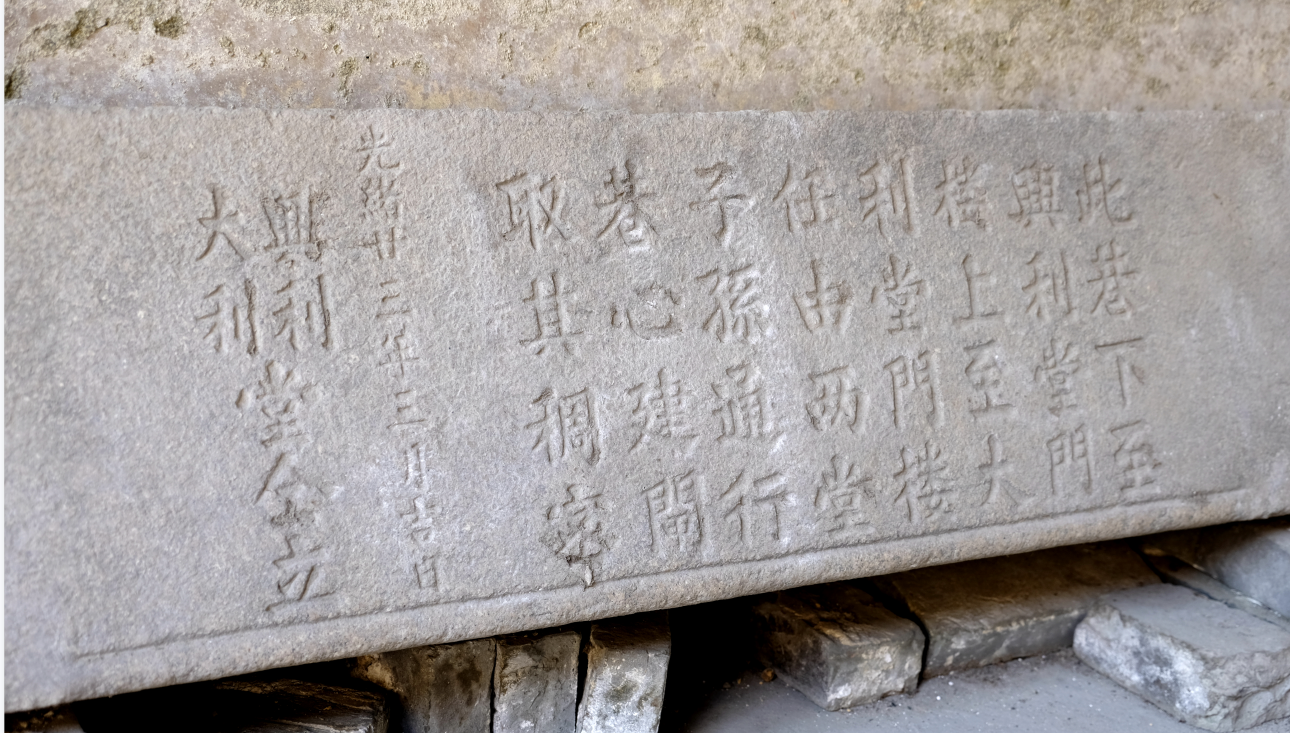 此巷下至
興利堂門
楼上至大
利堂門楼
任由西堂
子孫通行
巷心建閘
取其稠密
光緒廿三年三月吉日
興利堂仝立
大利